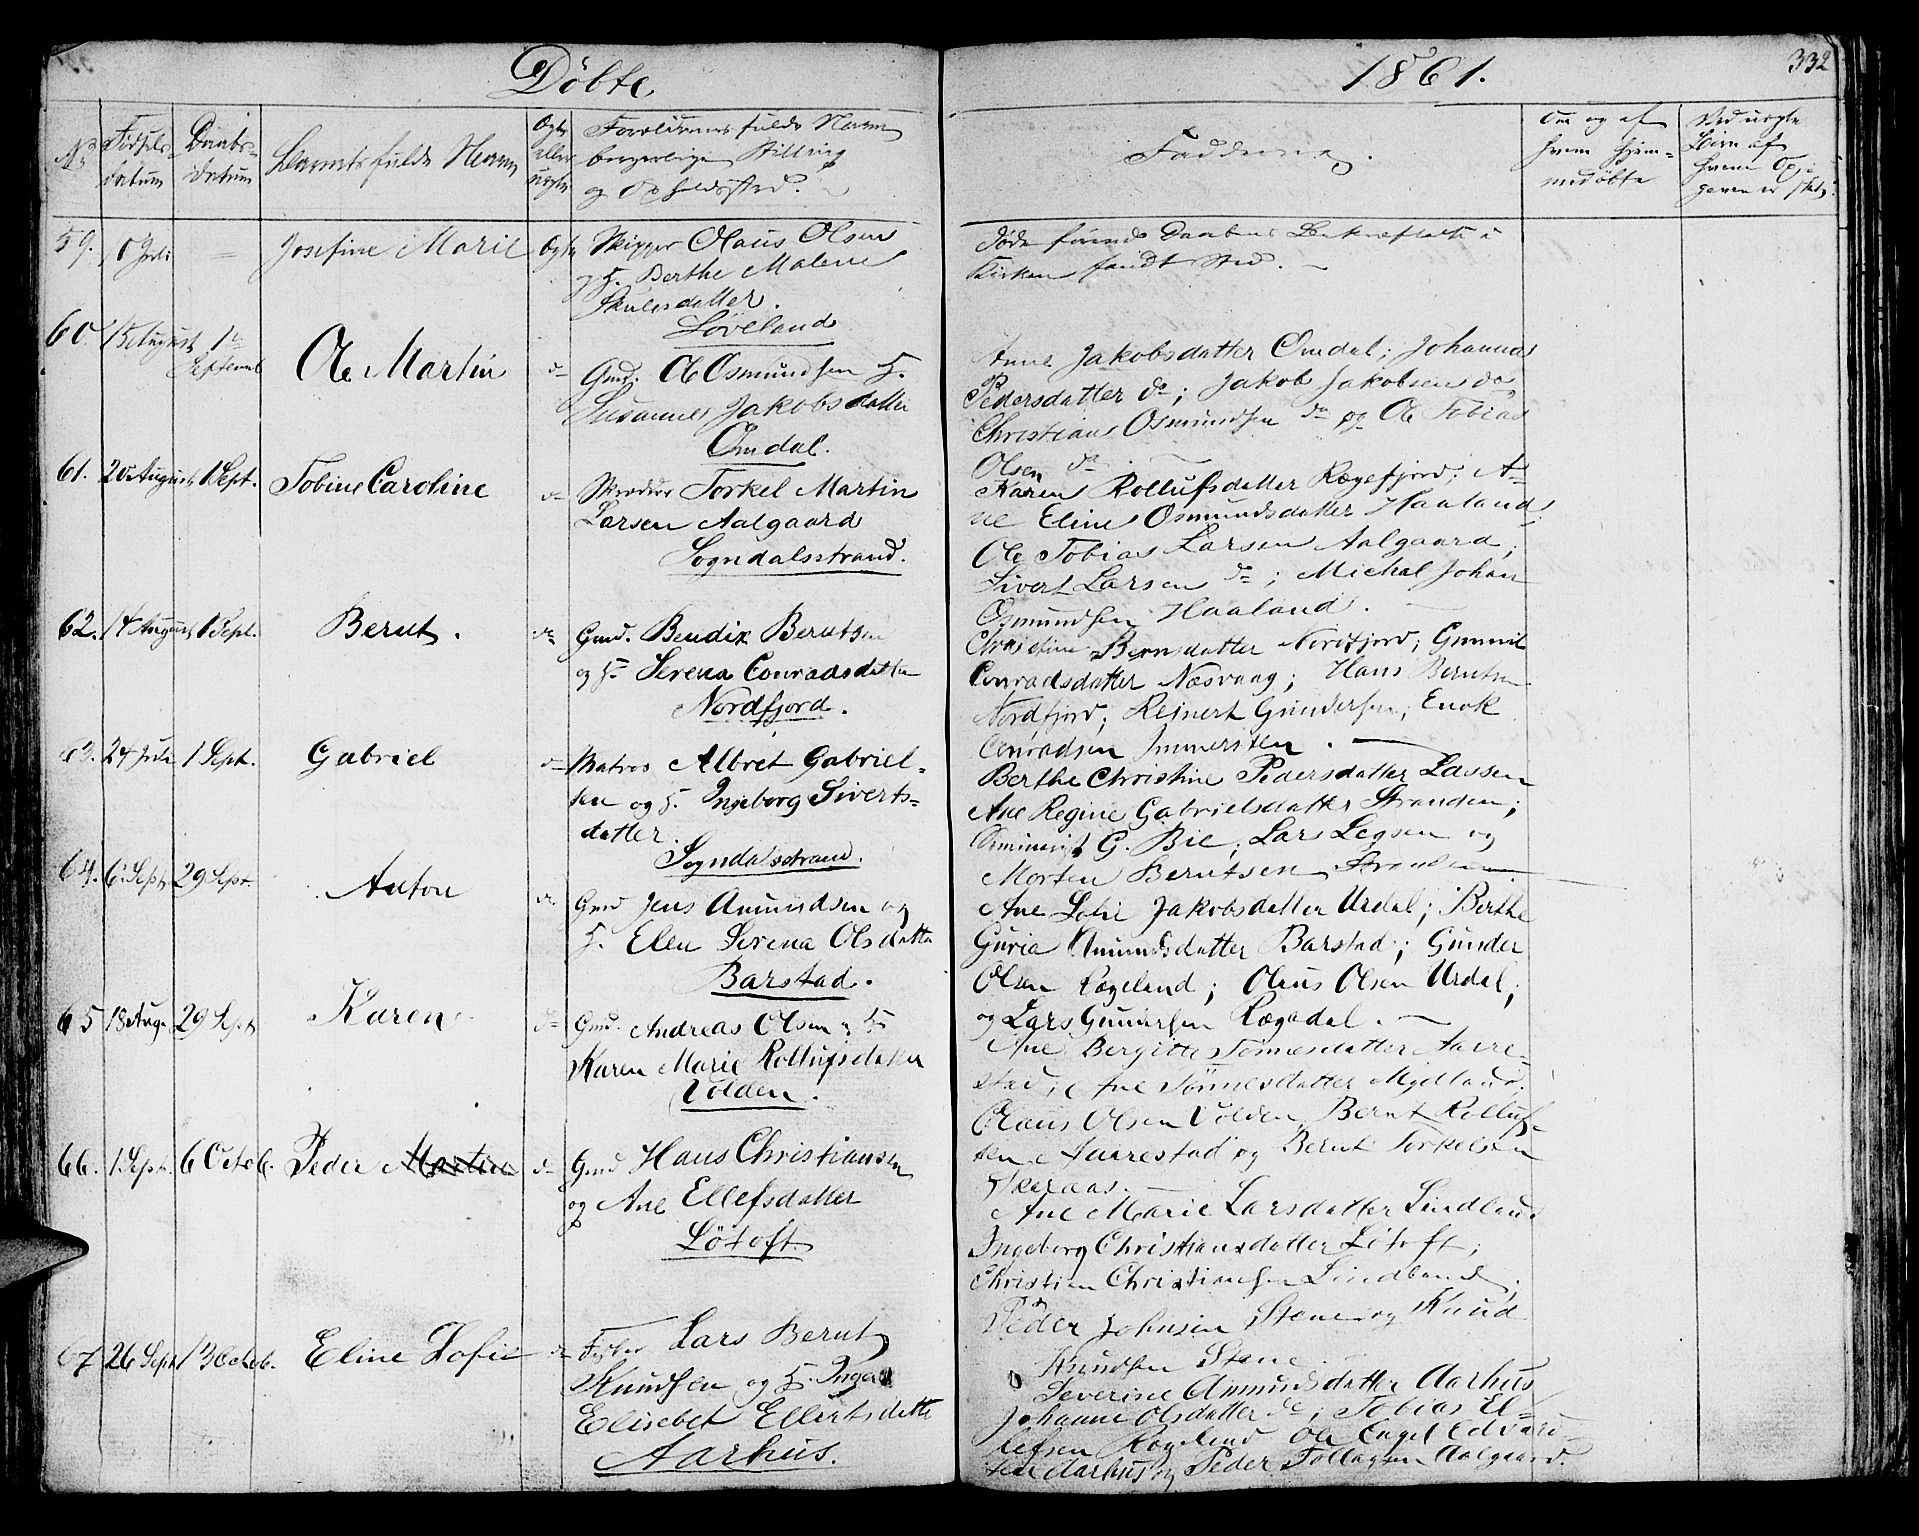 Döbte
1861.
332
No
Födsels-
datum
Daabs-
datum
Barnets fulde Navn
Ægte
eller
uægte
Forældrenes fulde Navn
borgerlige Stilling
og Opholdssted.
Faddernes
Om og af
hvem hjem-
medöbte
Ved uægte
Börn af
hvem Op-
gaven er skeet
59.
Juli
Josefine Marie
Ægte
Skipper Olaus Olsen
og H. Berthe Malene
Skulesdatter.
Löveland
Döde förend Daabens Bekræftelse i
Kirken fandt Sted.
60.
15 August
1ste
Septemb
Ole Martin
do
Gmd. Ole Osmundsen H.
Susanne Jakobsdatter
Omdal.
Anne Jakobsdatter Omdal; Johanne
Pedersdatter do; Jakob Jakobsen do
Christians Osmundsen do og Ole Tobias
Olsen do
61.
20 August
1 Sept.
Tobine Caroline
do
Skræder Torkel Martin
Larsen Aalgaard
Sogndalsstrand.
Karen Rollufsdatter Rægefjord; A-
ne Eline Osmundsdatter Haaland;
Ole Tobias Larsen Aalgaard;
Sivert Larsen do; Michal Johan
Osmundsen Haaland.
62.
14 August
1 Sept.
Berut.
do
Gmd. Bendix Berntsen
og H. Serena Conradsdatter
Nordfjord.
Christine Bernsdatter Nordfjord; Gunnil
Conradsdatter Næsvaag; Hans Berntsen
Nordfjord; Reinert Gundersen; Enok
Conradsen Immersten.
63.
24 Juli
1 Sept.
Gabriel
do
Matros Albret Gabriel-
sen og H. Ingeborg Siverts-
datter.
Sogndalsstrand.
Berthe Christine Pedersdatter Lassen
Ane Regine Gabrielsdatter Stranden;
G. Bie; Lars Legsen og
Morten Berntsen Stranden.
64.
6 Sept
29 Sept.
Anton
do
Gmd Jens Anmundsen og
H. Elen Serena Olsdatter
Barstad.
Ane Sofie Jakobsdatter Urdal; Berthe
Guria Anmundsdatter Barstad; Gunder
Olsen Rægeland; Olaus Olsen Urdal;
og Lars Gundersen Rægedal.
65
18 Aug.
29 Sept
Karen
do
Gmd. Andreas Olsen og H
Karen Marie Rollufsdatter
Volden.
Ane Bergitte Tönnesdatter Aarre-
stad; Ane Tönnesdatter Mydland;
Olaus Olsen Volden, Bernt Rolluf-
sen Aarrestad og Bernt Torkelsen
Skeraas.
66.
1 Sept.
6 Octob.
Peder Martin
do
Gmd Hans Christiansen
og Ane Ellefsdatter
Lötoft.
Ane Marie Larsdatter Lindland
Ingeborg Christiansdatter Lötoft;
Christian Christiansen Lindland,
Peder Johnsen Stene og Knud
Knudsen Stene.
67
26 Sept
13 Octob.
Eline Sofie
do
Lars Bernt
Knudsen og H. Inger
Elisebet Ellertsdatter
Aarhus.
Severine Anmundsdatter Aarhus
Johanne Olsdatter do; Tobias El-
lefsen Rægeland Ole Engel Edvard-
sen Aarhus og Peder Tollagsen Aalgaard.